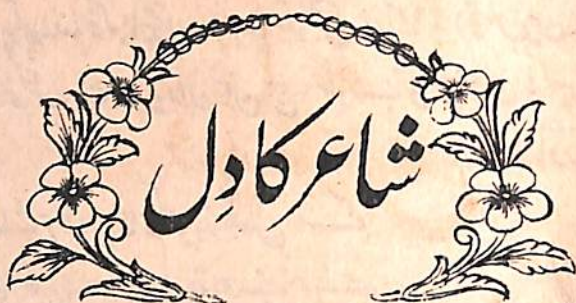 شاعر کا دِل